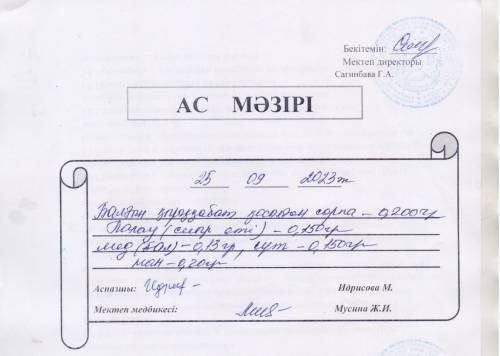 Бекітемін:
Мектеп директоры
Сагинбава Г.А.
АС МӘЗІРІ
25 09 2023ж
Балғын сорпа – 0,200гр
Палау (сиыр еті) – 0,150гр
мед (бал) – 0,13гр, сүт – 0,150гр
нан – 0,20гр
Аспазшы: Идрисова М.
Мектеп медбикесі: Мусина Ж.И.